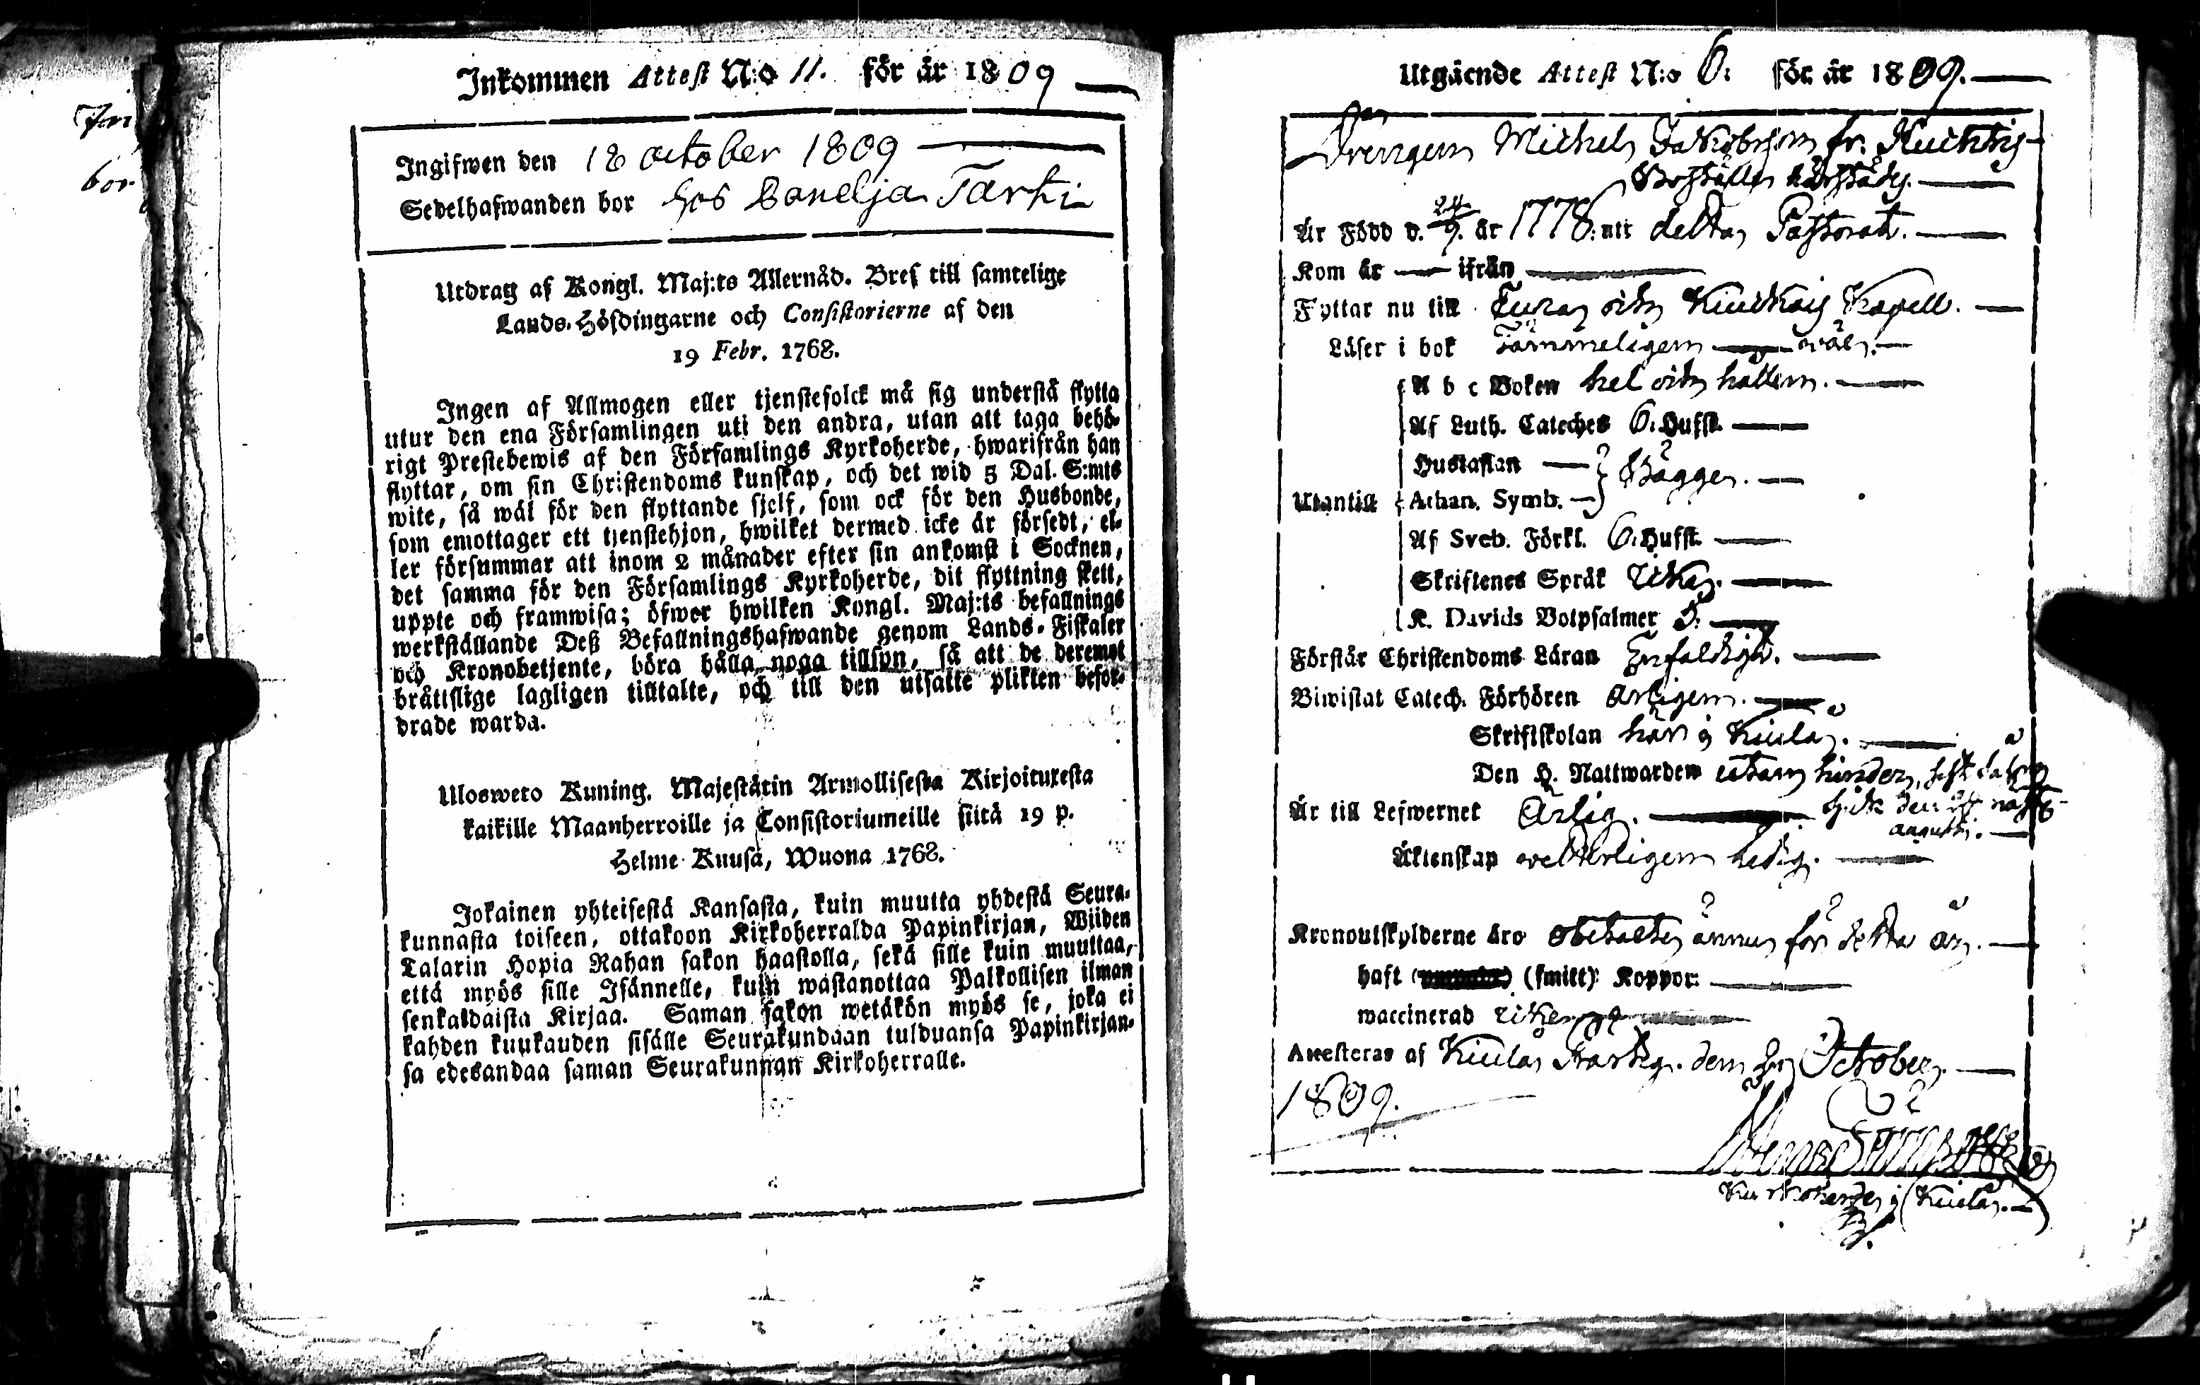 Inkommen Attest N:o 11. för år 1809
Ingifwen den 18 october 1809
Sedelhafwanden bor hos Danelja Tarki
Utdrag af Kongl. Maj:ts Allernåd. Bref till samtelige
Lands-Höfdingarne och Consistorierne af den
19 Febr. 1768.
Ingen af Allmogen eller tjenstefolck må sig understå flytta
utur den ena Församlingen uti den andra, utan att taga behö-
rigt Prestebewis af den Församlings Kyrkoherde, hwarifrån han
flyttar, om sin Christendoms kunskap, och det wid 5 Dal. S:mts
wite, så wäl för den flyttande sjelf, som ock för den Husbonde,
som emottager ett tjenstehjon, hwilket dermed icke är försedt, el-
ler försummar att inom 2 månader efter sin ankomst i Socknen,
det samma för den Församlings Kyrkoherde, dit flyttning skett,
uppte och framwisa; öfwer hwilken Kongl. Maj:ts befallnings
werkställande Deß Befallningshafwande genom Lands-Fiskaler
och Kronobetjente, böra hålla noga tillsyn, så att de deremot
bråttslige lagligen tilltalte, och till den utsatte plikten befor-
drade warda.
Ulosweto Kuning. Majestätin Armollisesta Kirjoituxesta
kaikille Maanherroille ja Consistoriumeille siitä 19 p.
Helme Kuusa, Wuona 1768.
Jokainen yhteisestä Kansasta, kuin muutta yhdestä Seura-
kunnasta toiseen, ottakoon Kirkoherralda Papinkirjan, Wiiden
Talarin Hopia Rahan sakon haastolla, sekä sille kuin muuttaa,
että myös sille Isännelle, kuin wastanottaa Palkollisen ilman
senkaldaista Kirjaa. Saman sakon wetäkön myös se, joka ei
kahden kuukauden sisälle Seurakundaan tulduansa Papinkirjan-
sa edesandaa saman Seurakunnan Kirkoherralle.
Utgående Attest N:o 6. för år 1809.
Drengen Michel Jakobsson fr.
Är Född d. 24/9. år 1778. uti detta Pastorat.
Kom år ifrån
Fyttar nu till Eura och Kiukais Kapell.
Läser i bok Tämmeligen wäl.
A b c Boken hel och hållen.
Af Luth. Cateches 6. Hufst.
Hustaflan
Bägge.
Utantill Athan. Symb.
Af Sveb. Förkl. 6. Hufst.
Skriftenes Språk Icke.
K. Davids Botpsalmer 3.
Förstår Christendoms Läran Enfaldigt.
Biwistat Catech. Förhören årligen.
Skriftskolan här i Kiula.
Den H. Nattwarden utan hinder,
gick den
augusti.
Är till Lefwernet Ärlig.
Äktenskap ledig.
Kronoutskylderne äro obetalte ännu för detta år.
haft (smitt) Koppor
waccinerad icke
Attesteras af Kiula Prästg. den October
1809.
Kyrkoherde i Kiula.